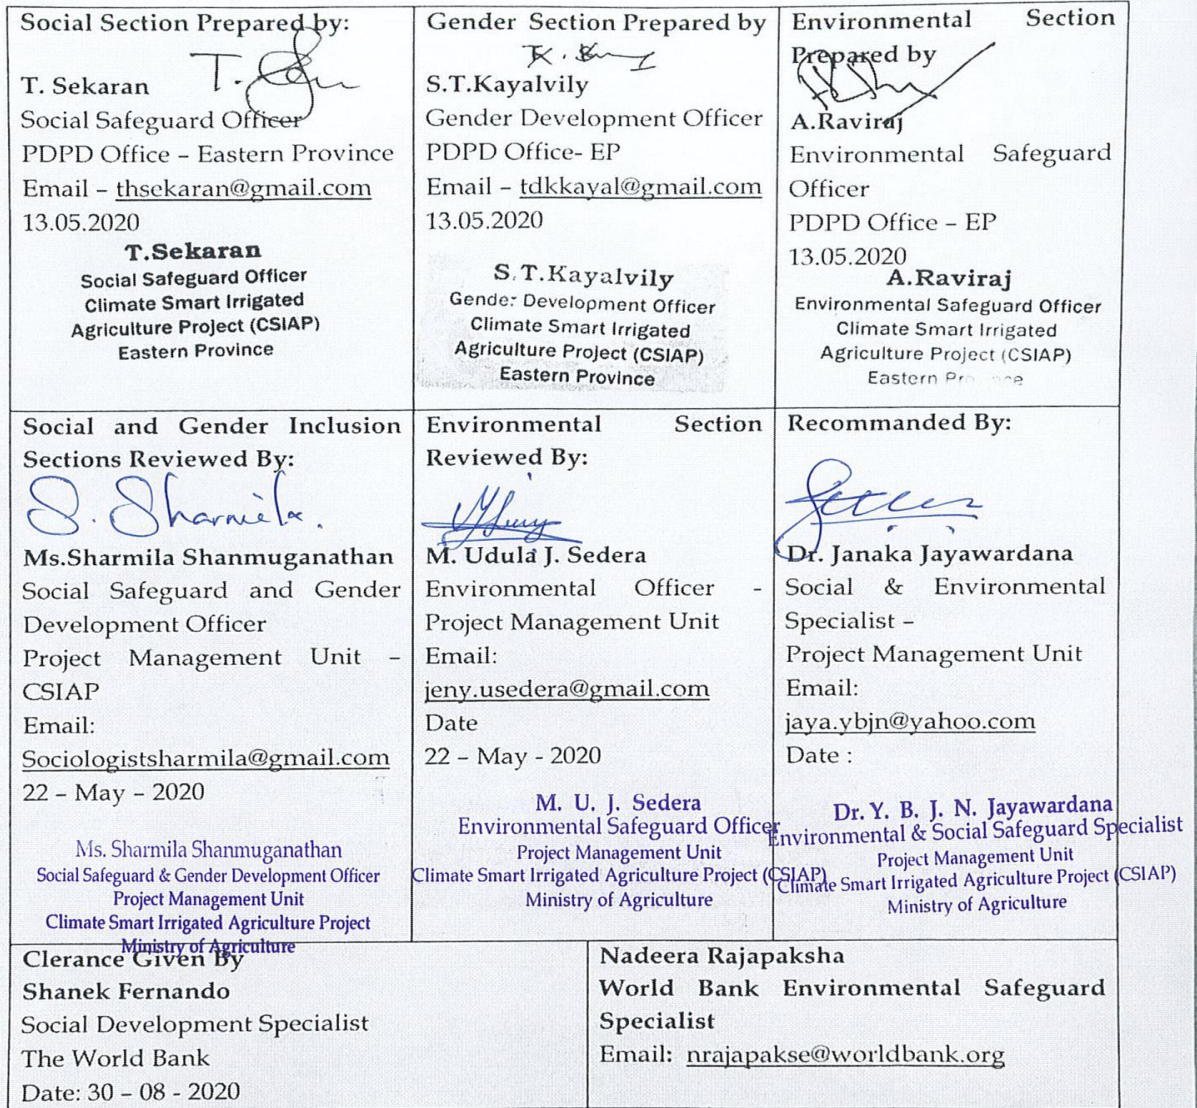 Social Section Prepared by:
T. Sekaran
Social Safeguard Officer
PDPD Office – Eastern Province
Email – thsekaran@gmail.com
13.05.2020
T.Sekaran
Social Safeguard Officer
Climate Smart Irrigated
Agriculture Project (CSIAP)
Eastern Province
Gender Section Prepared by
S.T.Kayalvily
Gender Development Officer
PDPD Office- EP
Email – tdkkayal@gmail.com
13.05.2020
S.T.Kayalvily
Gender Development Officer
Climate Smart Irrigated
Agriculture Project (CSIAP)
Eastern Province
Environmental Section
Prepared by
A.Raviraj
Environmental Safeguard
Officer
PDPD Office – EP
13.05.2020
A.Raviraj
Environmental Safeguard Officer
Climate Smart Irrigated
Agriculture Project (CSIAP)
Eastern
Social and Gender Inclusion
Sections Reviewed By:
S. Sharmila.
Ms.Sharmila Shanmuganathan
Social Safeguard and Gender
Development Officer
Project Management Unit –
CSIAP
Email:
Sociologistsharmila@gmail.com
22 – May – 2020
Ms. Sharmila Shanmuganathan
Social Safeguard & Gender Development Officer
Project Management Unit
Climate Smart Irrigated Agriculture Project
Ministry of Agriculture
Environmental Section
Reviewed By:
M. Udula J. Sedera
Environmental Officer -
Project Management Unit
Email:
jeny.usedera@gmail.com
Date
22 – May - 2020
M. U. J. Sedera
Environmental Safeguard Officer
Project Management Unit
Climate Smart Irrigated Agriculture Project (CSIAP)
Ministry of Agriculture
Recommanded By:
Dr. Janaka Jayawardana
Social & Environmental
Specialist –
Project Management Unit
Email:
jaya.ybjn@yahoo.com
Date :
Dr. Y. B. J. N. Jayawardana
Environmental & Social Safeguard Specialist
Project Management Unit
Climate Smart Irrigated Agriculture Project (CSIAP)
Ministry of Agriculture
Clerance Given By
Shanek Fernando
Social Development Specialist
The World Bank
Date: 30 – 08 - 2020
Nadeera Rajapaksha
World Bank Environmental Safeguard
Specialist
Email: nrajapakse@worldbank.org